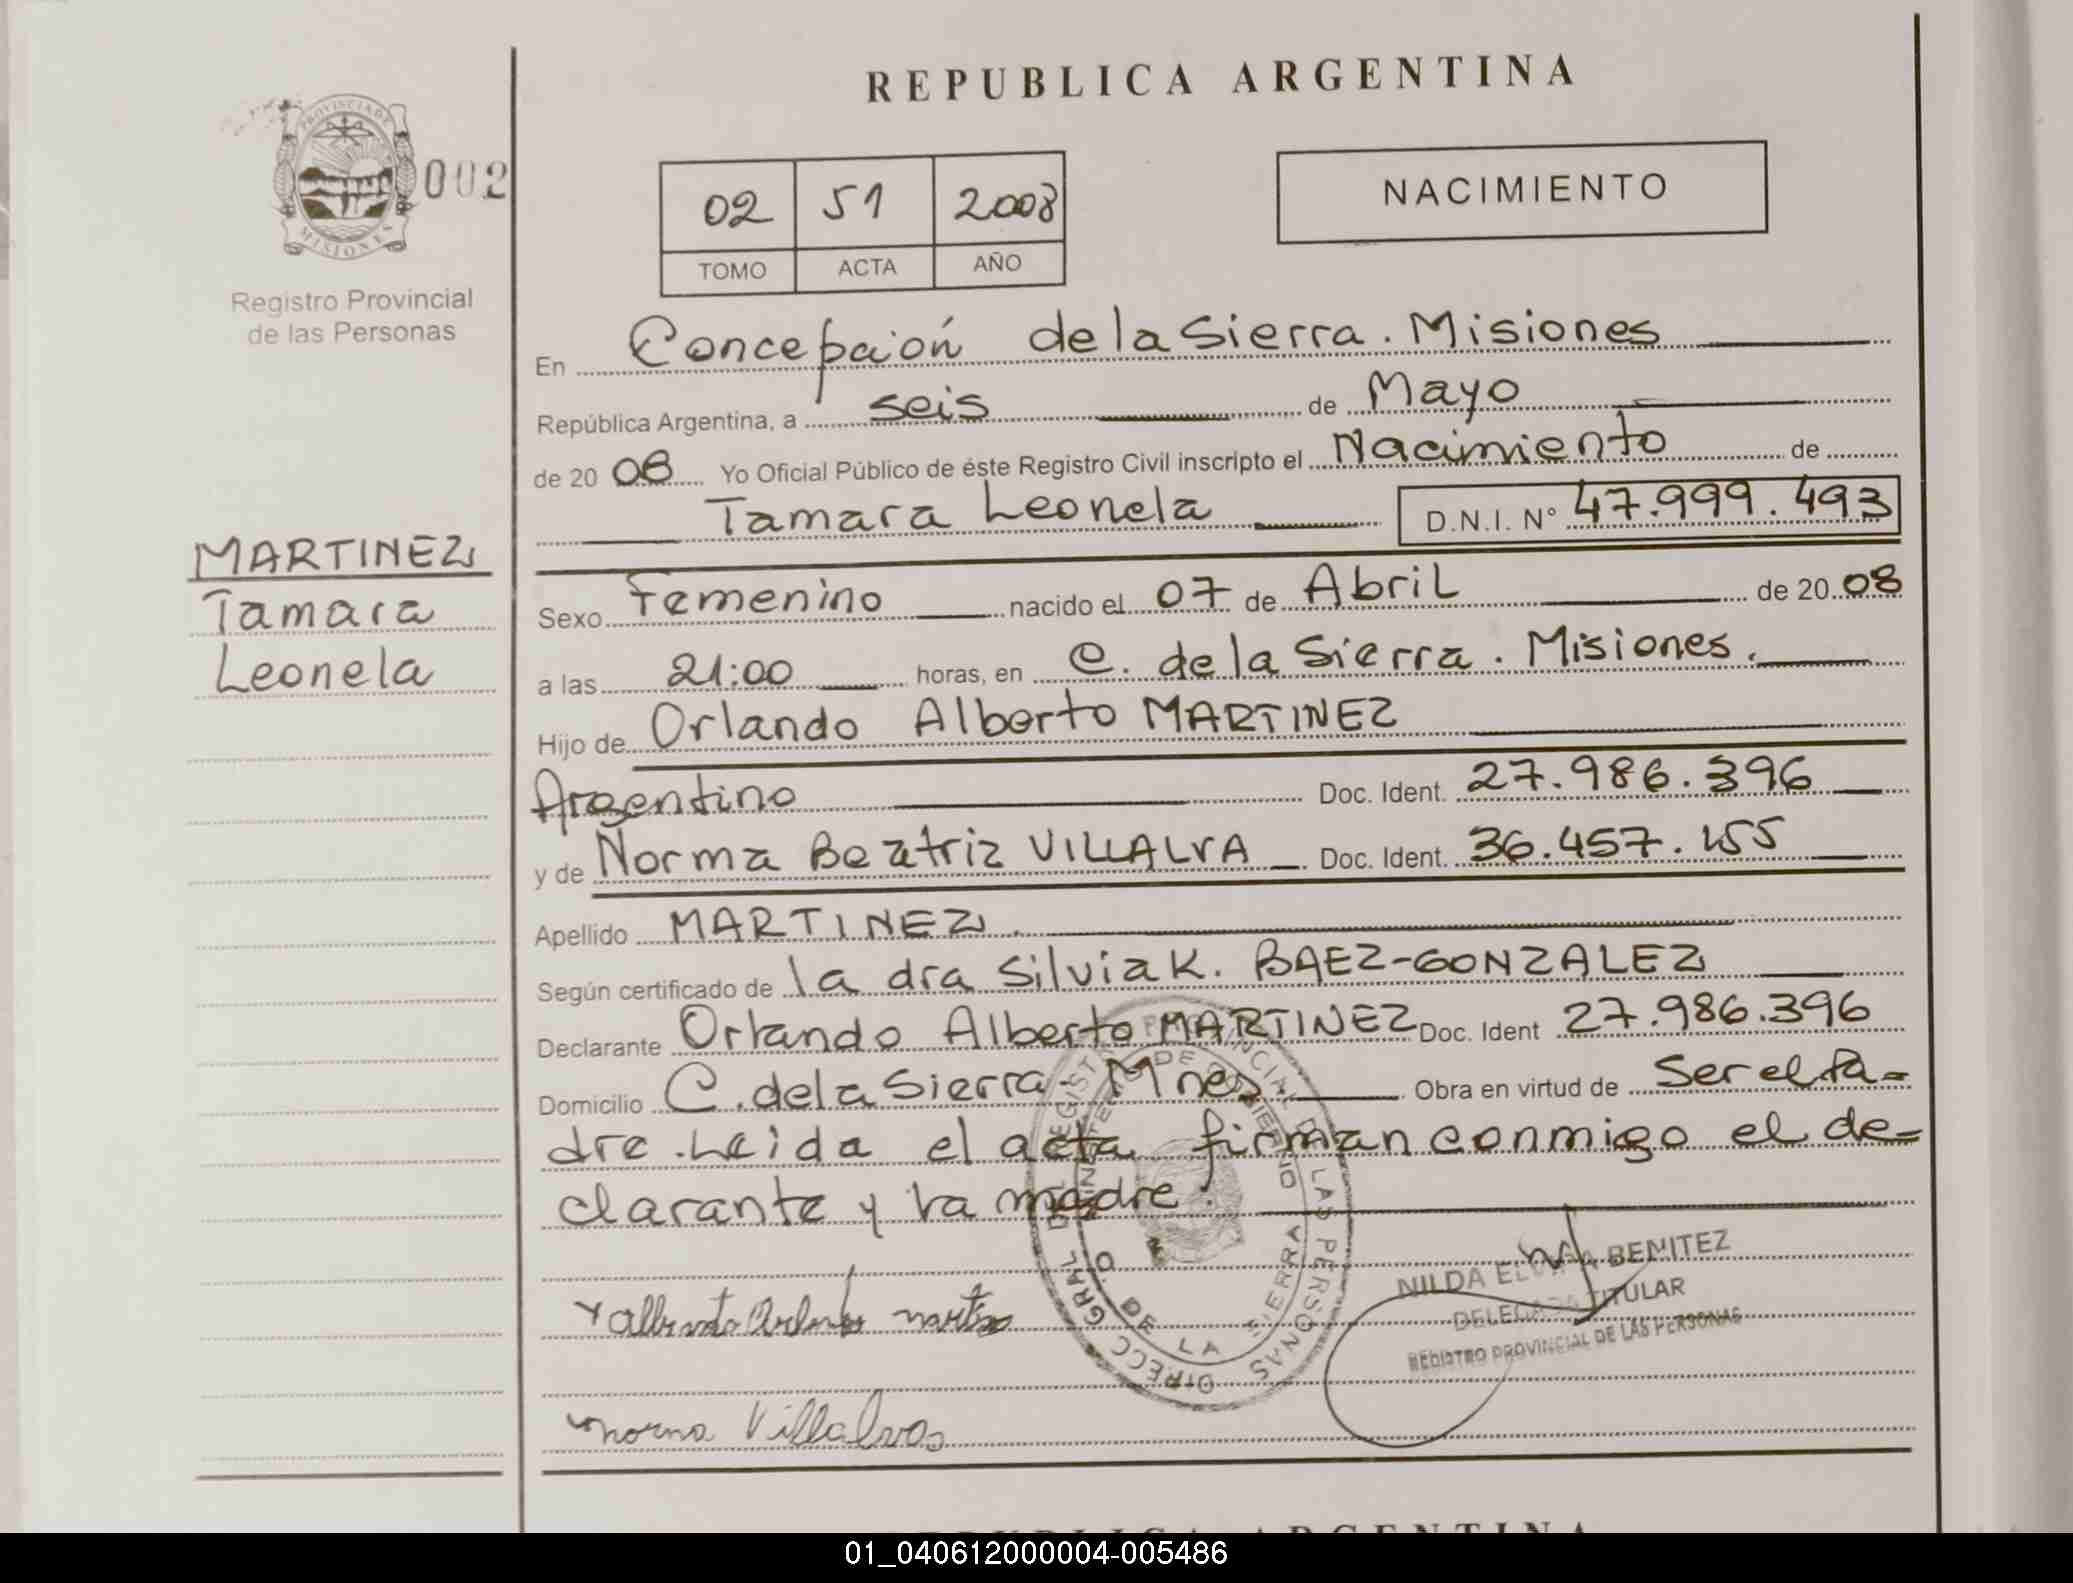 REPUBLICA ARGENTINA
PROVINCIA DE
MISIONES
002
Registro Provincial
de las Personas
02 51 2008
TOMO ACTA AÑO
NACIMIENTO
En Concepción de la Sierra. Misiones
República Argentina, a seis de Mayo
de 20 08 Yo Oficial Público de éste Registro Civil inscripto el Nacimiento de
Tamara Leonela D.N.I. Nº 47.999.493
MARTINEZ
Tamara
Leonela
Sexo Femenino nacido el 07 de Abril de 20 08
a las 21:00 horas, en C. de la Sierra. Misiones.
Hijo de Orlando Alberto MARTINEZ
Argentino Doc. Ident. 27.986.396
y de Norma Beatriz VILLALVA Doc. Ident. 36.457.155
Apellido MARTINEZ.
Según certificado de la dra Silvia K. BAEZ-GONZALEZ
Declarante Orlando Alberto MARTINEZ Doc. Ident 27.986.396
Domicilio C. de la Sierra- Mnes. Obra en virtud de Ser el Pa-
dre. Leida el acta firman conmigo el de-
clarante y la madre.
NILDA BENITEZ
DELEGADA TITULAR
REGISTRO PROVINCIAL DE LAS PERSONAS
DIRECC GRAL DEL REGISTRO PROVINCIAL DE LAS PERSONAS
MINISTERIO DE GOBIERNO
DE LA SIERRA
norma Villalva
REPUBLICA ARGENTINA
01_040612000004-005486